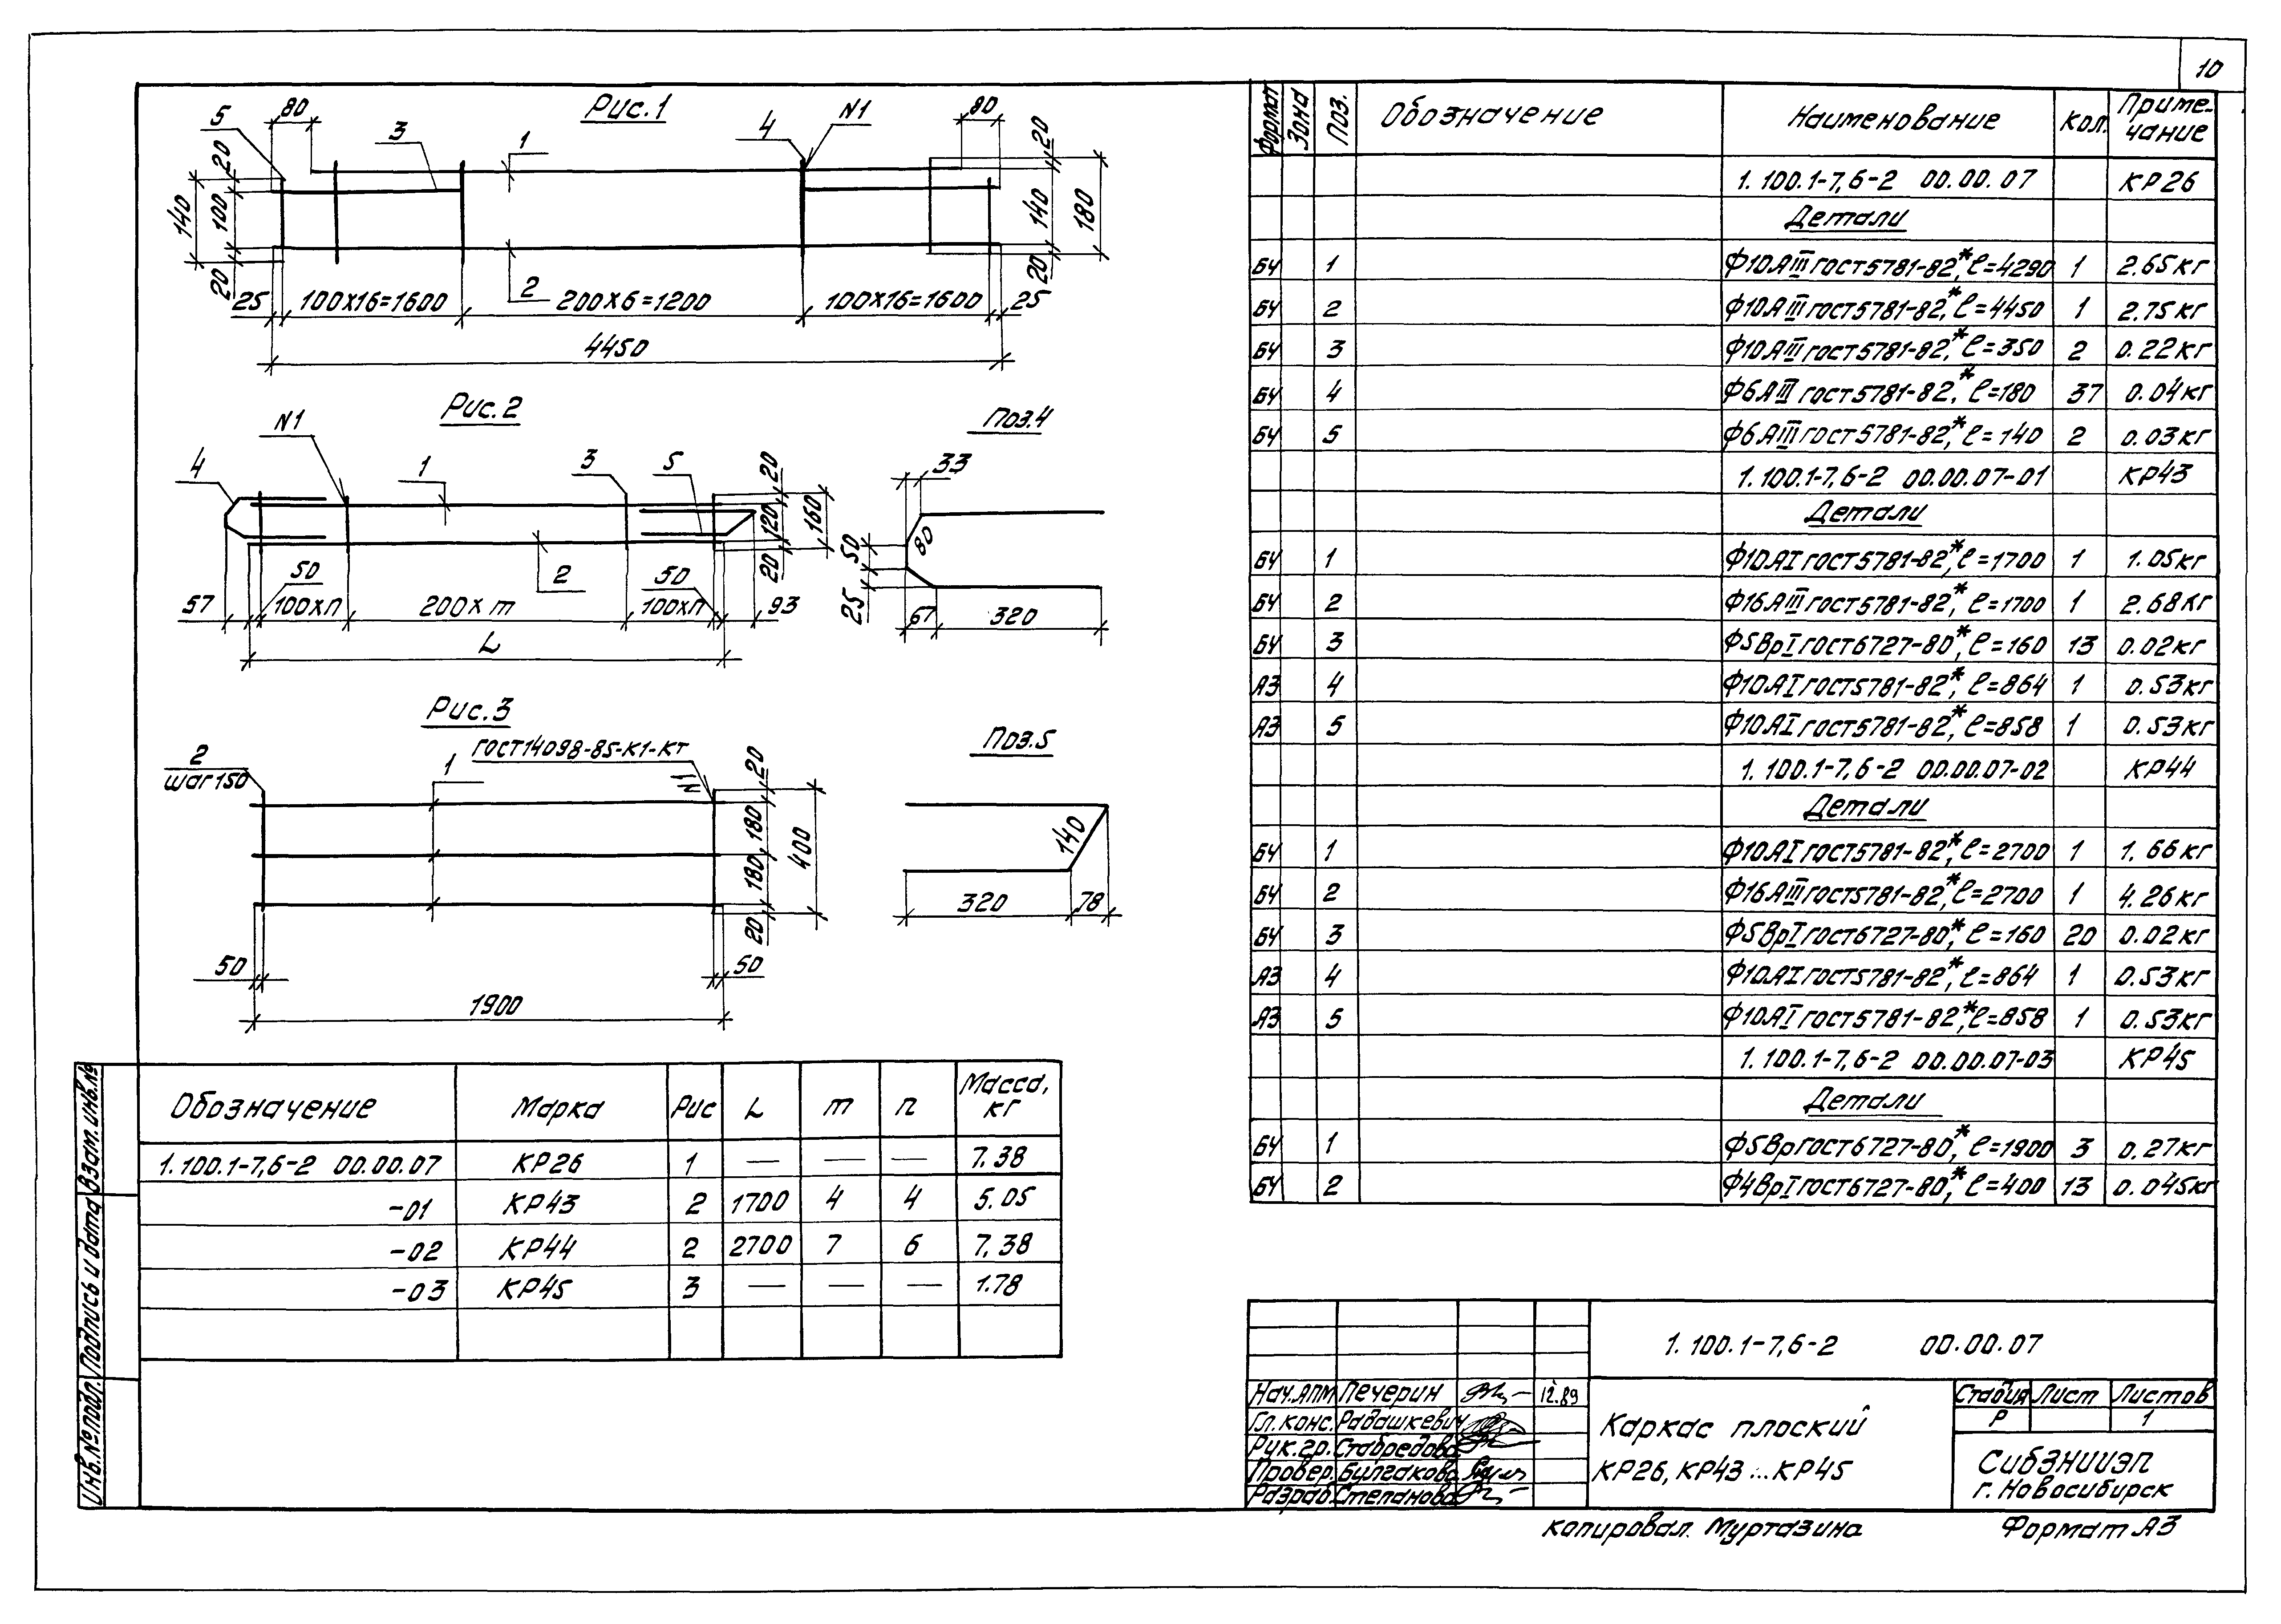 10
Рис.1
5
80
3
1
4
N1
80
20
100
140
20
20
140
180
20
25
100х16=1600
2
200х6=1200
100х16=1600
25
4450
Рис.2
N1
4
1
3
5
20
120
160
20
50
2
50
57
100хп
200х m
100хп
93
L
Поз.4
33
80
50
25
67
320
Рис.3
2
шаг150
1
ГОСТ14098-85-К1-Кт
20
180
180
400
20
50
50
1900
Поз.5
140
320
78
Обозначение Марка Рис L m п Масса, кг
1.100.1-7,6-2 00.00.07 КР26 1 — — — 7.38
-01 КР43 2 1700 4 4 5.05
-02 КР44 2 2700 7 6 7.38
-03 КР45 3 — — — 1.78
Формат Зона Поз. Обозначение Наименование Кол. Приме-чание
1.100.1-7,6-2 00.00.07 КР26
Детали
БЧ 1 Ф10АIII ГОСТ5781-82*, ℓ=4290 1 2.65кг
БЧ 2 Ф10АIII ГОСТ5781-82*, ℓ=4450 1 2.75кг
БЧ 3 Ф10АIII ГОСТ5781-82*, ℓ=350 2 0.22кг
БЧ 4 Ф6АIII ГОСТ5781-82*, ℓ=180 37 0.04кг
БЧ 5 Ф6АIII ГОСТ5781-82*, ℓ=140 2 0.03кг
1.100.1-7,6-2 00.00.07-01 КР43
Детали
БЧ 1 Ф10АI ГОСТ5781-82*, ℓ=1700 1 1.05кг
БЧ 2 Ф16АIII ГОСТ5781-82*, ℓ=1700 1 2.68кг
БЧ 3 Ф5ВрI ГОСТ6727-80*, ℓ=160 13 0.02кг
А3 4 Ф10АI ГОСТ5781-82*, ℓ=864 1 0.53кг
А3 5 Ф10АI ГОСТ5781-82*, ℓ=858 1 0.53кг
1.100.1-7,6-2 00.00.07-02 КР44
Детали
БЧ 1 Ф10АI ГОСТ5781-82*, ℓ=2700 1 1.66кг
БЧ 2 Ф16АIII ГОСТ5781-82*, ℓ=2700 1 4.26кг
БЧ 3 Ф5ВрI ГОСТ6727-80*, ℓ=160 20 0.02кг
А3 4 Ф10АI ГОСТ5781-82*, ℓ=864 1 0.53кг
А3 5 Ф10АI ГОСТ5781-82*, ℓ=858 1 0.53кг
1.100.1-7,6-2 00.00.07-03 КР45
Детали
БЧ 1 Ф5Вр ГОСТ6727-80*, ℓ=1900 3 0.27кг
БЧ 2 Ф4ВрI ГОСТ6727-80*, ℓ=400 13 0.045кг
Взам.инв.№
Подпись и дата
Инв.№подл.
1.100.1-7,6-2 00.00.07
Нач.АПМ Печерин 12.89
Гл.конс. Радашкевич
Рук.гр. Стабредова
Провер. Булгакова
Разраб. Степанова
Каркас плоский
КР26, КР43...КР45
Стадия Лист Листов
Р 1
СибЗНИИЭП
г. Новосибирск
Копировал. Муртазина
Формат А3